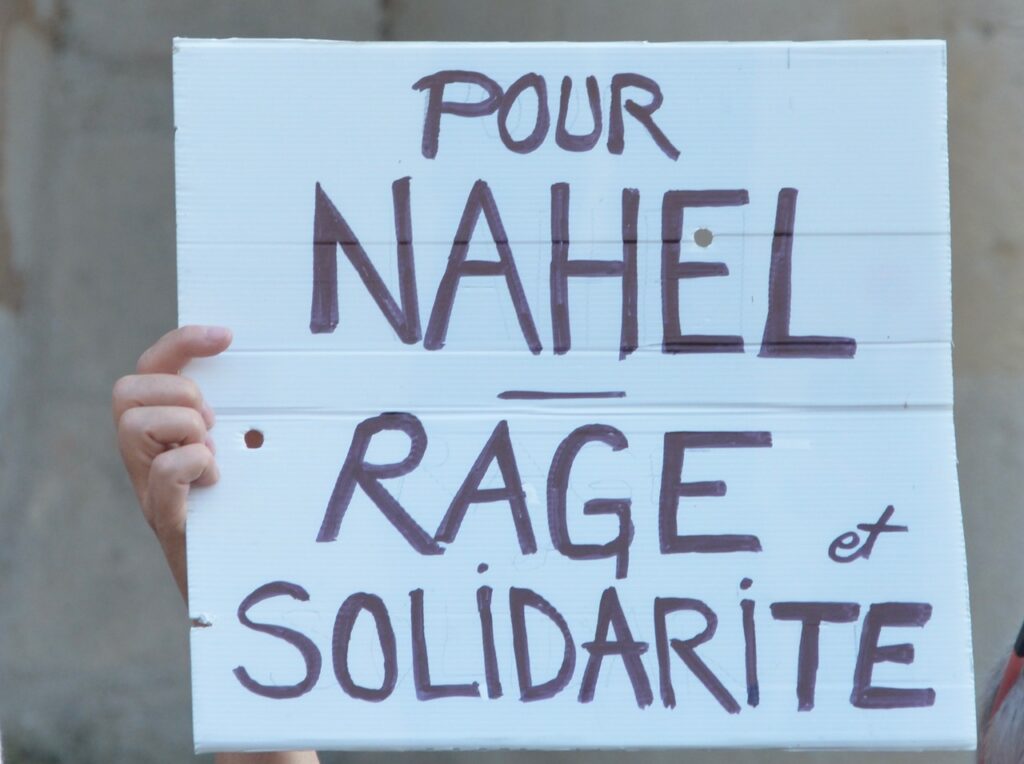 POUR
NAHEL
—
RAGE et
SOLiDARiTE